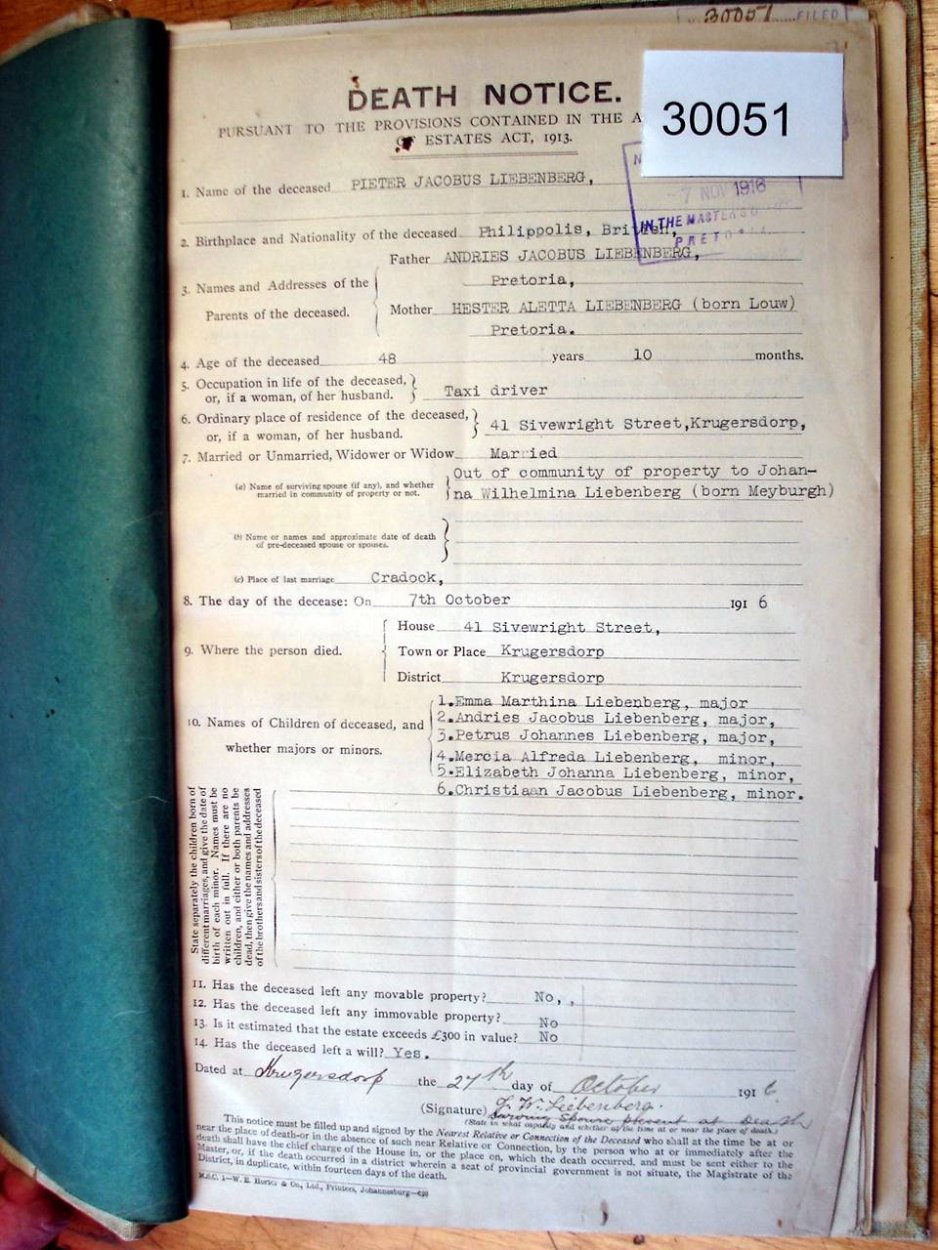 30051 FILED
30051
DEATH NOTICE.
PURSUANT TO THE PROVISIONS CONTAINED IN THE A
OF ESTATES ACT, 1913.
7 NOV 1916
IN THE MASTER'S O
PRETO
1. Name of the deceased PIETER JACOBUS LIEBENBERG,
2. Birthplace and Nationality of the deceased Philippolis, British,
3. Names and Addresses of the Parents of the deceased.
Father ANDRIES JACOBUS LIEBENBERG,
Pretoria,
Mother HESTER ALETTA LIEBENBERG (born Louw)
Pretoria.
4. Age of the deceased 48 years 10 months.
5. Occupation in life of the deceased,
or, if a woman, of her husband. } Taxi driver
6. Ordinary place of residence of the deceased,
or, if a woman, of her husband. } 41 Sivewright Street,Krugersdorp,
7. Married or Unmarried, Widower or Widow Married
(a) Name of surviving spouse (if any), and whether
married in community of property or not.
Out of community of property to Johan-
na Wilhelmina Liebenberg (born Meyburgh)
(b) Name or names and approximate date of death
of pre-deceased spouse or spouses.
(c) Place of last marriage Cradock,
8. The day of the decease: On 7th October 1916
9. Where the person died.
House 41 Sivewright Street,
Town or Place Krugersdorp
District Krugersdorp
10. Names of Children of deceased, and
whether majors or minors.
1.Emma Marthina Liebenberg, major
2.Andries Jacobus Liebenberg, major,
3.Petrus Johannes Liebenberg, major,
4.Mercia Alfreda Liebenberg, minor,
5.Elizabeth Johanna Liebenberg, minor,
6.Christiaan Jacobus Liebenberg, minor.
State separately the children born of
different marriages, and give the date of
birth of each minor. Names must be
written out in full. If there are no
children, and either or both parents be
dead, then give the names and addresses
of the brothers and sisters of the deceased
11. Has the deceased left any movable property? No, ,
12. Has the deceased left any immovable property? No
13. Is it estimated that the estate exceeds £300 in value? No
14. Has the deceased left a will? Yes.
Dated at Krugersdorp the 27th day of October 1916
(Signature) J. W. Liebenberg.
Surviving Spouse present at Death
(State in what capacity and whether at the time at or near the place of death.)
This notice must be filled up and signed by the Nearest Relative or Connection of the Deceased who shall at the time be at or
near the place of death-or in the absence of such near Relative or Connection, by the person who at or immediately after the
death shall have the chief charge of the House in, or the place on, which the death occurred, and must be sent either to the
Master, or, if the death occurred in a district wherein a seat of provincial government is not situate, the Magistrate of the
District, in duplicate, within fourteen days of the death.
W. E. Hortor & Co., Ltd., Printers, Johannesburg